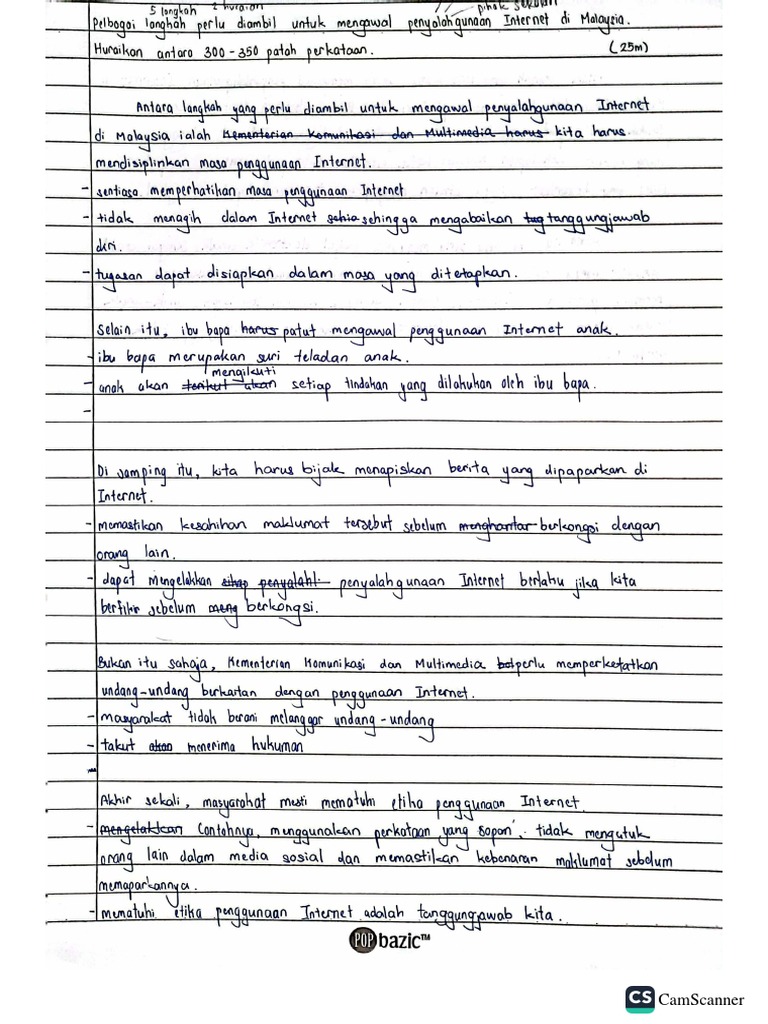 5 langkah 2 huraian
pihak sekolah
Pelbagai langkah perlu diambil untuk mengawal penyalahgunaan Internet di Malaysia.
Huraikan antara 300-350 patah perkataan. (25m)
Antara langkah yang perlu diambil untuk mengawal penyalahgunaan Internet
di Malaysia ialah Kementerian Komunikasi dan Multimedia harus kita harus
mendisiplinkan masa penggunaan Internet.
- sentiasa memperhatikan masa penggunaan Internet
- tidak menagih dalam Internet sehia sehingga mengabaikan tug tanggungjawab
diri.
- tugasan dapat disiapkan dalam masa yang ditetapkan.
Selain itu, ibu bapa harus patut mengawal penggunaan Internet anak.
- ibu bapa merupakan suri teladan anak.
mengikuti
- anak akan terikut akan setiap tindakan yang dilakukan oleh ibu bapa.
-
Di samping itu, kita harus bijak menapiskan berita yang dipaparkan di
Internet.
- memastikan kesahihan maklumat tersebut sebelum menghantar berkongsi dengan
orang lain.
- dapat mengelakkan penyalahgunaan Internet berlaku jika kita
berfikir sebelum meng berkongsi.
Bukan itu sahaja, Kementerian Komunikasi dan Multimedia perlu memperketatkan
undang-undang berkaitan dengan penggunaan Internet.
- masyarakat tidak berani melanggar undang-undang
- takut akan menerima hukuman
Akhir sekali, masyarakat mesti mematuhi etika penggunaan Internet
- mengelakkan Contohnya, menggunakan perkataan yang sopan, tidak mengutuk
orang lain dalam media sosial dan memastikan kebenaran maklumat sebelum
memaparkannya.
- mematuhi etika penggunaan Internet adalah tanggungjawab kita.
POP bazic™
CS CamScanner